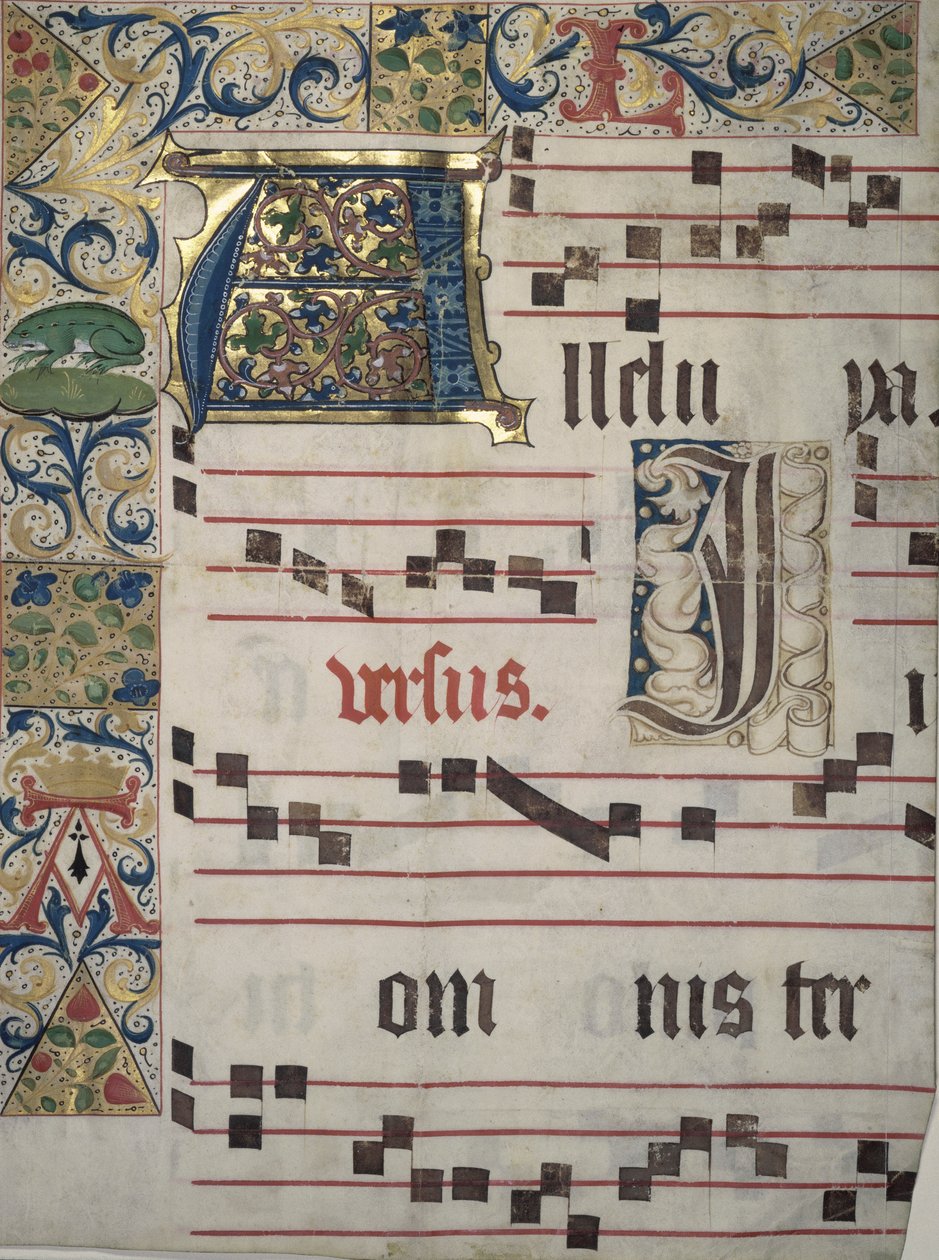 L
Allelu ya.
versus. I
A
om nis ter